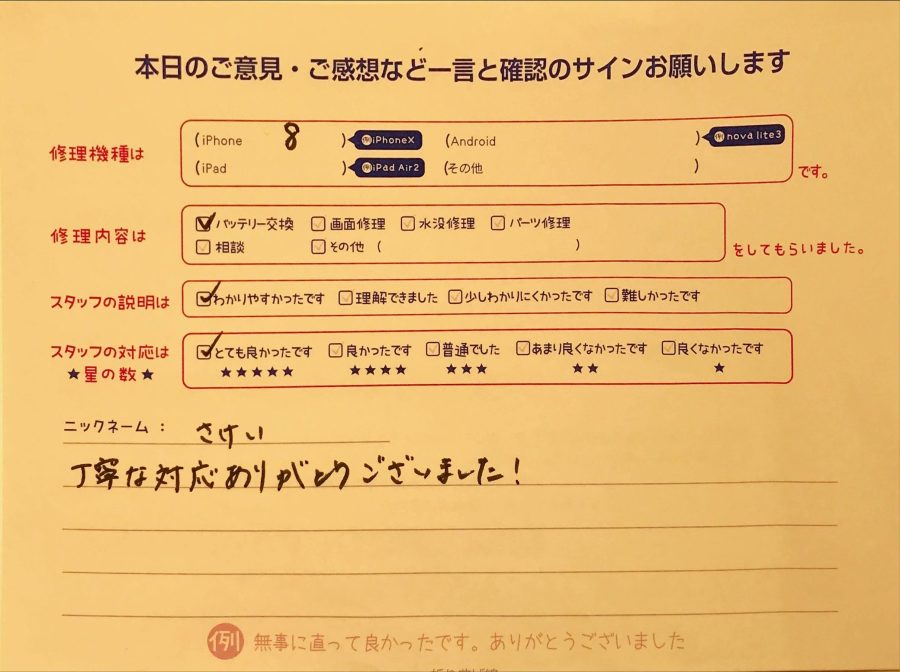 本日のご意見・ご感想など一言と確認のサインお願いします
修理機種は
(iPhone 8 ) 例iPhoneX (Android ) 例nova lite3
(iPad ) 例iPad Air2 (その他 )
です。
修理内容は
バッテリー交換 画面修理 水没修理 パーツ修理
相談 その他 ( )
をしてもらいました。
スタッフの説明は
わかりやすかったです 理解できました 少しわかりにくかったです 難しかったです
スタッフの対応は
★星の数★
とても良かったです 良かったです 普通でした あまり良くなかったです 良くなかったです
★★★★★ ★★★★ ★★★ ★★ ★
ニックネーム： さけい
丁寧な対応ありがとうございました!
例 無事に直って良かったです。ありがとうございました